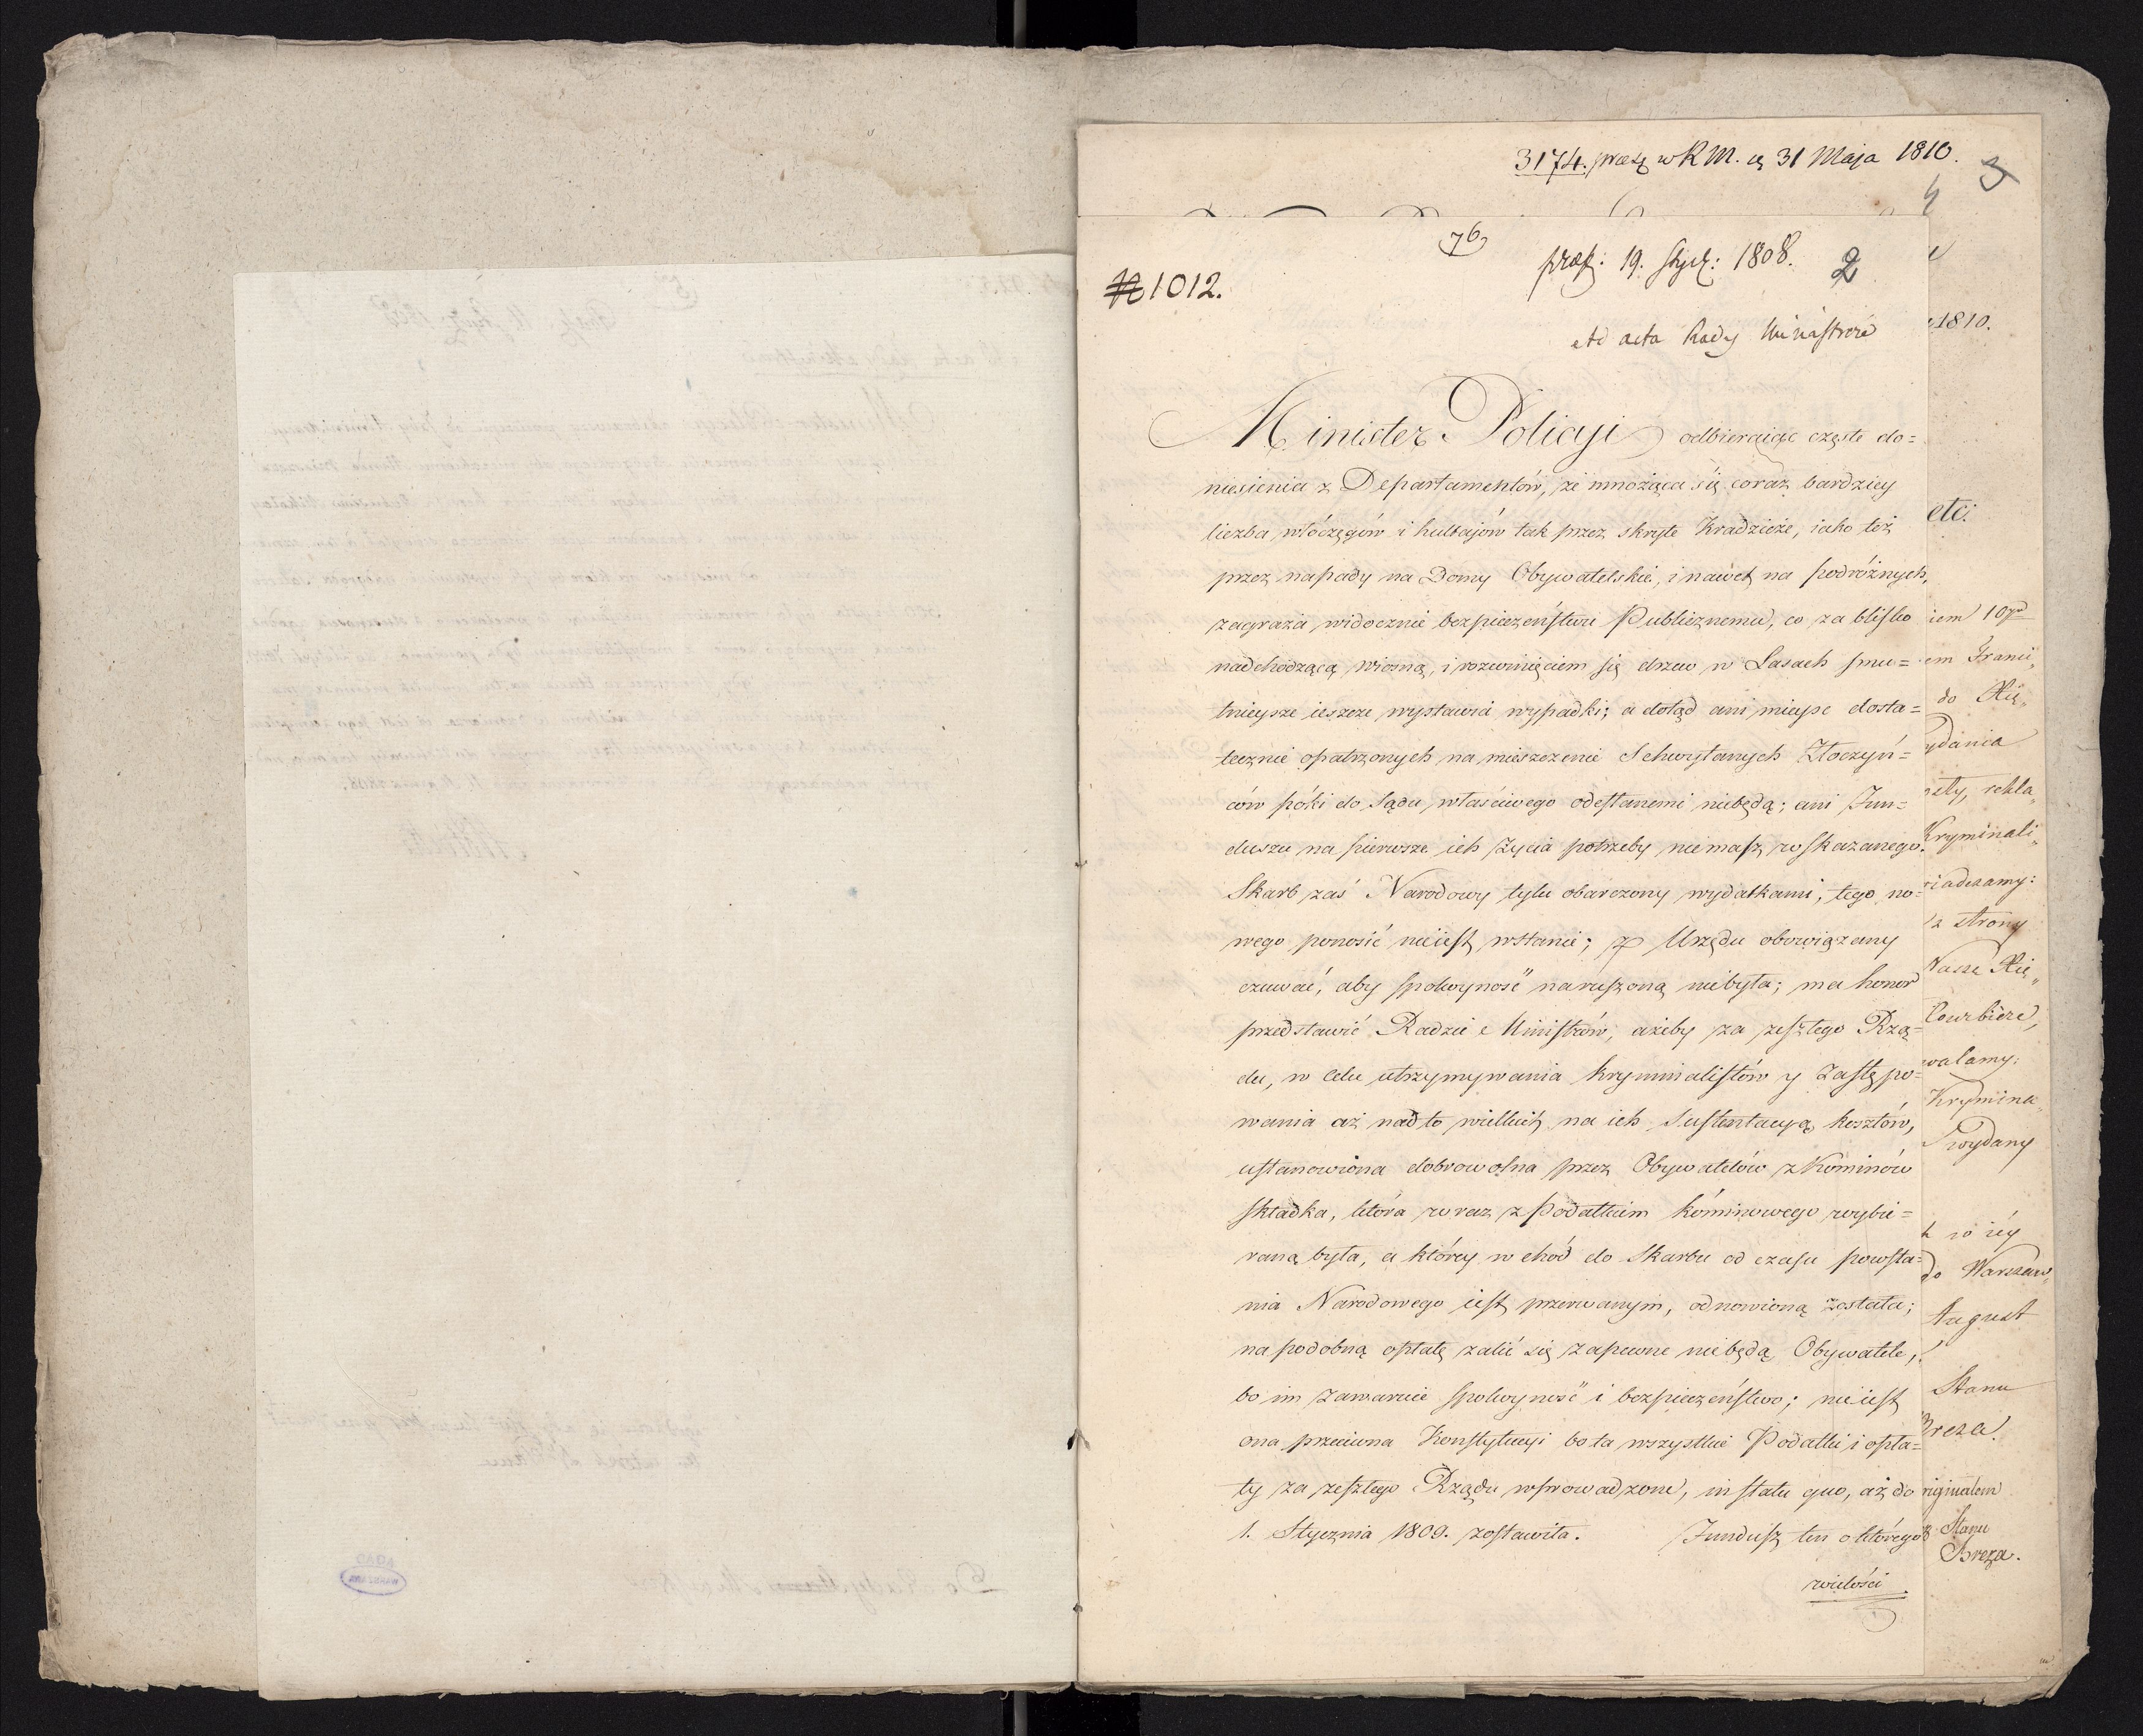 3174. praez w R M. d 31 Maja 1810.
3
4
76
N 1012.
praes: 19. Stycz: 1808.
2
Ad acta Rady Ministrów
1810.
Minister Policyi odbieraiąc częste do=
niesienia z Departamentów, że mnożąca się coraz bardziey
liczba włóczęgów i hultajów tak przez skryte Kradzieże, iako też
przez napady na Domy Obywatelskie, i nawet na podróżnych,
zagraża widocznie bezpieczeństwu Publicznemu, co za blisko
nadchodzącą wiosną, i rozwinięciem się drzew w Lasach smu=
tnieysze ieszcze wystawia wypadki; a dotąd ani mieysc dosta=
tecznie opatrzonych na mieszczenie Schwytanych Złoczyń=
ców póki do sądu właściwego odesłanemi niebędą; ani Fun=
duszu na pierwsze ich życia potrzeby niemasz wskazanego.
Skarb zaś Narodowy tylu obarczony wydatkami, tego no=
wego ponosić nieiest wstanie; z Urzędu obowiązany
czuwać, aby spokoyność naruszoną niebyła; ma honor
przedstawić Radzie Ministrów, ażeby za zeszłego Rzą=
du, w Celu utrzymywania kryminalistów y Zastępo=
wania aż nadto wielkich na ich Sustentacyą kosztów,
ustanowiona dobrowolna przez Obywatelów z Kominów
składka, która wraz z Podatkiem kóminowego wybie=
raną była, a którey wchód do Skarbu od czasu powsta=
nia Narodowego iest przerwanym, odnowioną została;
na podobną opłatę żalić się zapewne niebędą Obywatele,
bo im zawaruie spokoyność i bezpieczeństwo; nieiest
ona przeciwna Konstytucyi bo ta wszystkie Podatki i opła=
ty za zeszłego Rządu wprowadzone, in statu quo, aż do
1. Stycznia 1809. zostawiła. Fundusz ten o którego
wielości
etc.
iem 10go
em Franci„
do Xię„
ydania
Kryminali„
iadczamy:
z strony
Nasze Xię„
Courbiere,
walamy:
Krymina„
wydany
w iéy
do Warszaw„
August
Stanu
Breza.
riginałem
Stanu
Breza.